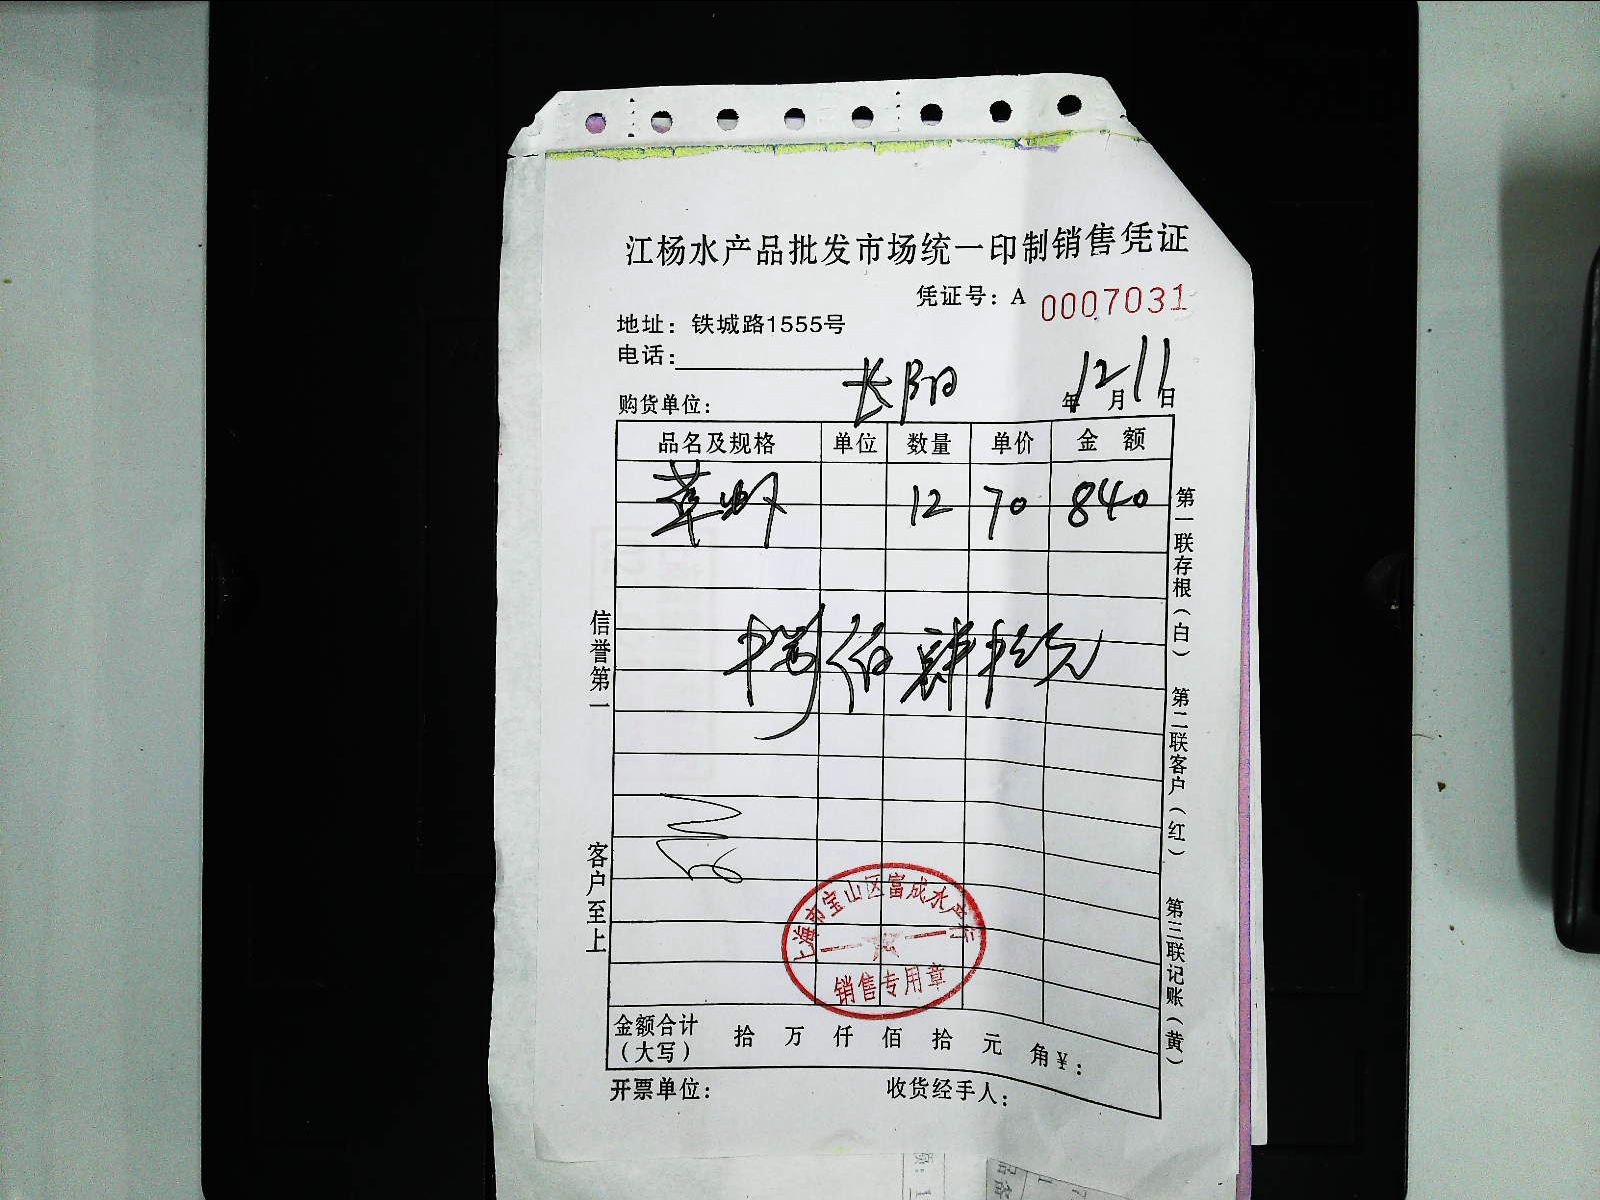 江杨水产品批发市场统一印制销售凭证
凭证号：A 0007031
地址：铁城路1555号
电话：
购货单位：长阳 年12月11日
品名及规格 单位 数量 单价 金额
草虾 12 70 840
捌佰肆拾元
信誉第一
客户至上
第一联存根（白） 第二联客户（红） 第三联记账（黄）
上海市宝山区富成水产行
销售专用章
金额合计 拾 万 仟 佰 拾 元 角¥：
（大写）
开票单位： 收货经手人：